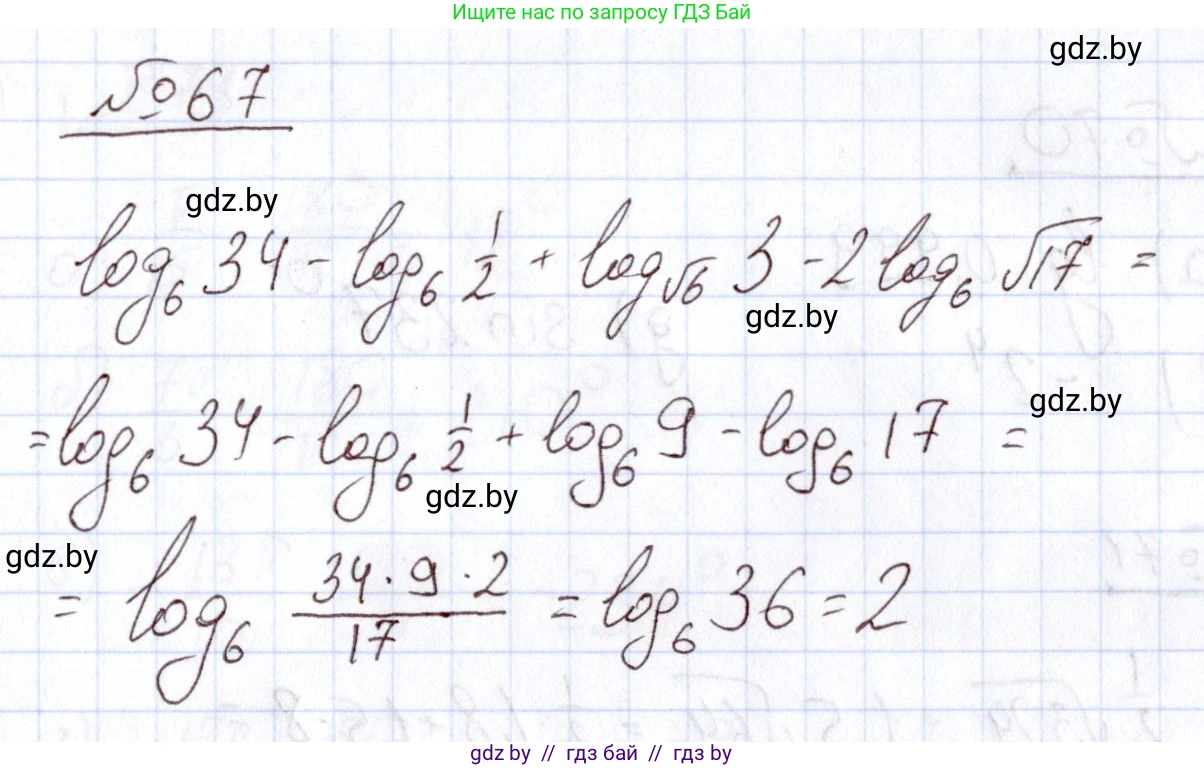 Ищите нас по запросу ГДЗ Бай
gdz.by
№67
gdz.by
log₆ 34 - log₆ 1/2 + log_√6 3 - 2 log₆ √17 =
gdz.by
= log₆ 34 - log₆ 1/2 + log₆ 9 - log₆ 17 =
gdz.by
gdz.by
gdz.by
= log₆ (34 · 9 · 2)/17 = log₆ 36 = 2
gdz.by // гдз бай // гдз by